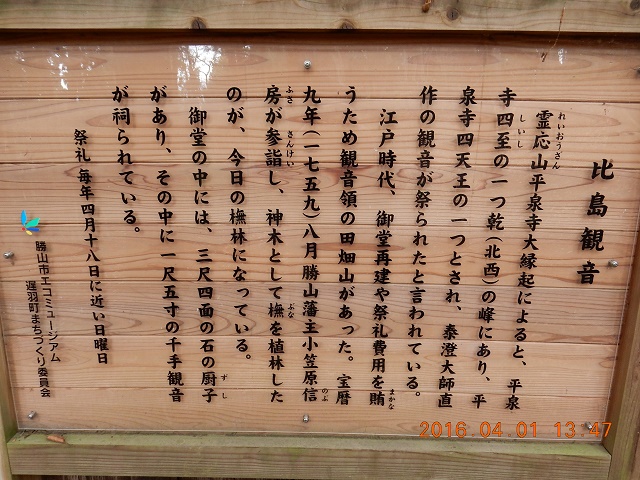 比島観音
霊応山平泉寺大縁起によると、平泉
れいおうざん
寺四至の一つ乾(北西)の峰にあり、平
しいし
泉寺四天王の一つとされ、泰澄大師直
作の観音が祭られたと言われている。
江戸時代、御堂再建や祭礼費用を賄
まかな
うため観音領の田畑山があった。宝暦
九年(一七五九)八月勝山藩主小笠原信
のぶ
房が参詣し、神木として橅を植林した
ふさ さんけい ぶな
のが、今日の橅林になっている。
御堂の中には、三尺四面の石の厨子
ずし
があり、その中に一尺五寸の千手観音
が祠られている。
祭礼 毎年四月十八日に近い日曜日
勝山市エコミュージアム
遅羽町まちづくり委員会
2016.04.01 13:47